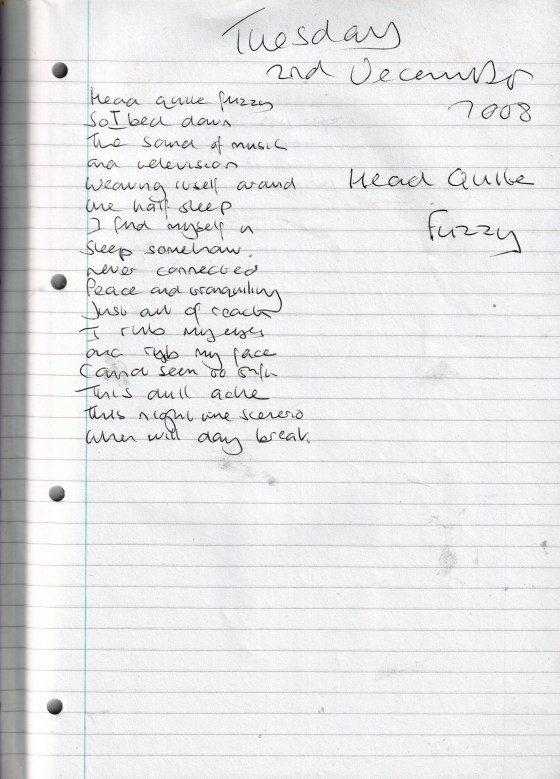 Tuesday
2nd December
2008
Head Quite
Fuzzy
Head quite fuzzy
So I bed down
The sound of music
and television
Weaving itself around
the half sleep
I find myself in
Sleep somehow.
never connected
Peace and tranquility
Just out of reach
I rub my eyes
and rub my face
Cannot seem to shift
This dull ache
This night time scenerio
When will day break